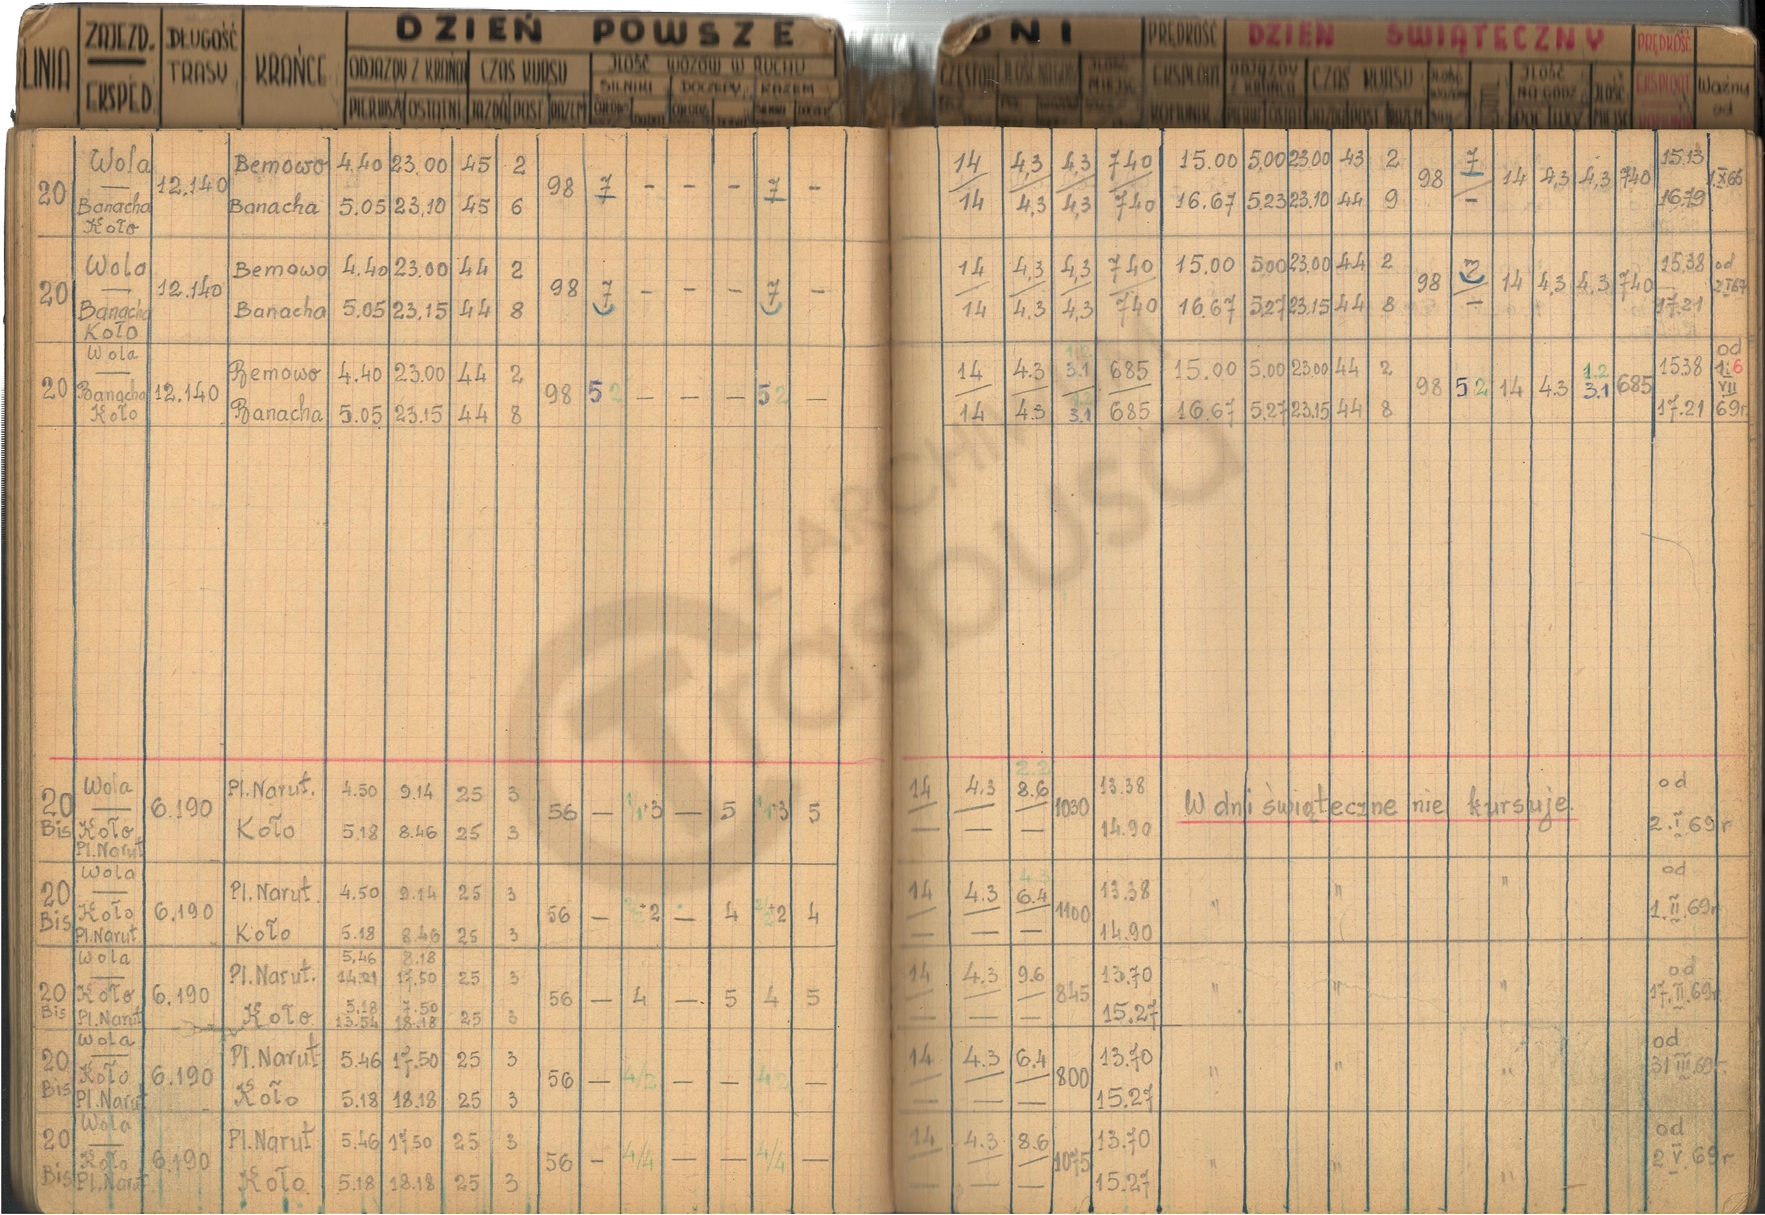 LINIA ZAJEZD. EKSPED. DŁUGOŚĆ TRASY KRAŃCE DZIEŃ POWSZEDNI PRĘDKOŚĆ DZIEŃ ŚWIĄTECZNY PRĘDKOŚĆ
ODJAZDY Z KRAŃCA CZAS KURSU ILOŚĆ WOZÓW W RUCHU EKSPLOAT ODJAZDY Z KRAŃCA CZAS KURSU ILOŚĆ NA GODZ. EKSPLOAT Ważny od
SILNIKI DOCZEPY RAZEM
PIERWSZY OSTATNI JAZDA POST RAZEM
20 Wola 12.140 Bemowo 4.40 23,00 45 2 98 7 - - - 7 - 14 4,3 4,3 740 15.00 5,00 23.00 43 2 98 7 14 4,3 4,3 740 15.13 1 X 66
Banacha Banacha 5.05 23,10 45 6 14 4,3 4,3 740 16.67 5,23 23.10 44 9 - 16.79
Koło
20 Wola 12.140 Bemowo 4.40 23.00 44 2 98 7 - - - 7 - 14 4,3 4,3 740 15.00 5.00 23.00 44 2 98 14 4,3 4,3 740 15.38 od
Banacha Banacha 5.05 23,15 44 8 14 4,3 4,3 740 16.67 5,27 23.15 44 8 - 17.21
Koło
20 Wola 12.140 Bemowo 4.40 23.00 44 2 98 5 2 - - - 5 2 - 14 4.3 1.2 3.1 685 15.00 5.00 23.00 44 2 98 5 2 14 4.3 1.2 3.1 685 15.38 od 1.6 VII
Banacha Banacha 5.05 23.15 44 8 14 4.3 3.1 685 16.67 5,27 23.15 44 8 17.21 69r.
Koło
Z ARCHIWUM
Trasbusa
20 Bis Wola 6.190 Pl.Narut. 4.50 9.14 25 3 56 - 1/1+3 - 5 1/1+3 5 14 4.3 2.2 8.6 1030 13.38 W dni świąteczne nie kursuje. od
Koło Koło 5.18 8.46 25 3 - - - 14.90 2.I.69r
Pl.Narut
20 Bis Wola 6.190 Pl.Narut. 4.50 9.14 25 3 56 - +2 - 4 +2 4 14 4.3 4.3 6.4 1100 13.38 " " " od
Koło Koło 5.18 8.46 25 3 - - - 14.90 1.II.69r
Pl.Narut
20 Bis Wola 6.190 Pl.Narut. 5,46 8.18 14.21 17,50 25 3 56 - 4 - 5 4 5 14 4.3 9.6 845 13.70 " " " od
Koło Koło 5.18 7.50 13.54 18.18 25 3 - - - 15.27 17.II.69r
Pl.Narut
20 Bis Wola 6.190 Pl.Narut 5.46 17.50 25 3 56 - 4/2 - - 4/2 - 14 4.3 6.4 800 13.70 " " " od
Koło Koło 5.18 18.18 25 3 - - - 15.27 31 III.69r.
Pl.Narut
20 Bis Wola 6.190 Pl.Narut 5.46 17.50 25 3 56 - 4/4 - - 4/4 - 14 4.3 8.6 1075 13.70 " " " od
Koło Koło. 5.18 18.18 25 3 - - - 15.27 2 V.69r
Pl.Narut